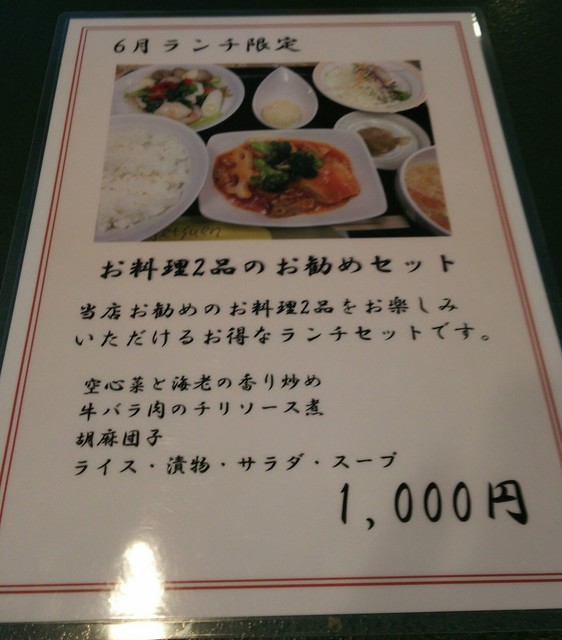 6月ランチ限定
お料理2品のお勧めセット
当店お勧めのお料理2品をお楽しみ
いただけるお得なランチセットです。
空心菜と海老の香り炒め
牛バラ肉のチリソース煮
胡麻団子
ライス・漬物・サラダ・スープ
1,000円